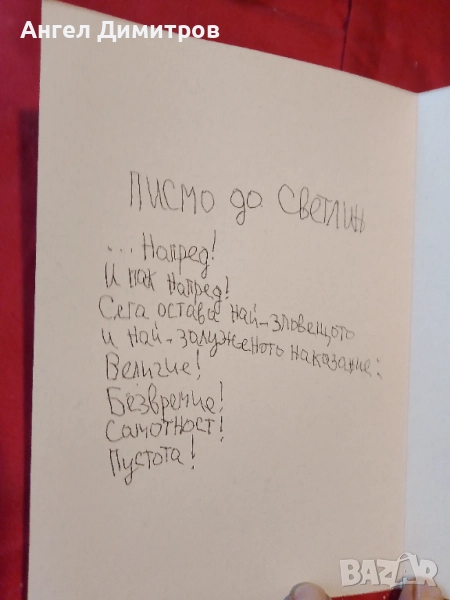 Ангел Димитров
Писмо до Светлин
...Напред!
И пак напред!
Сега остава най-зловещото
и най-залуженото наказание:
Величие!
Безвремие!
Самотност!
Пустота!
BAZAR